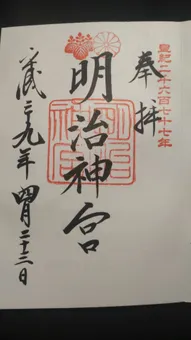 皇紀二千六百七十七年
奉拝
明治神宮
平成二十九年四月二十二日